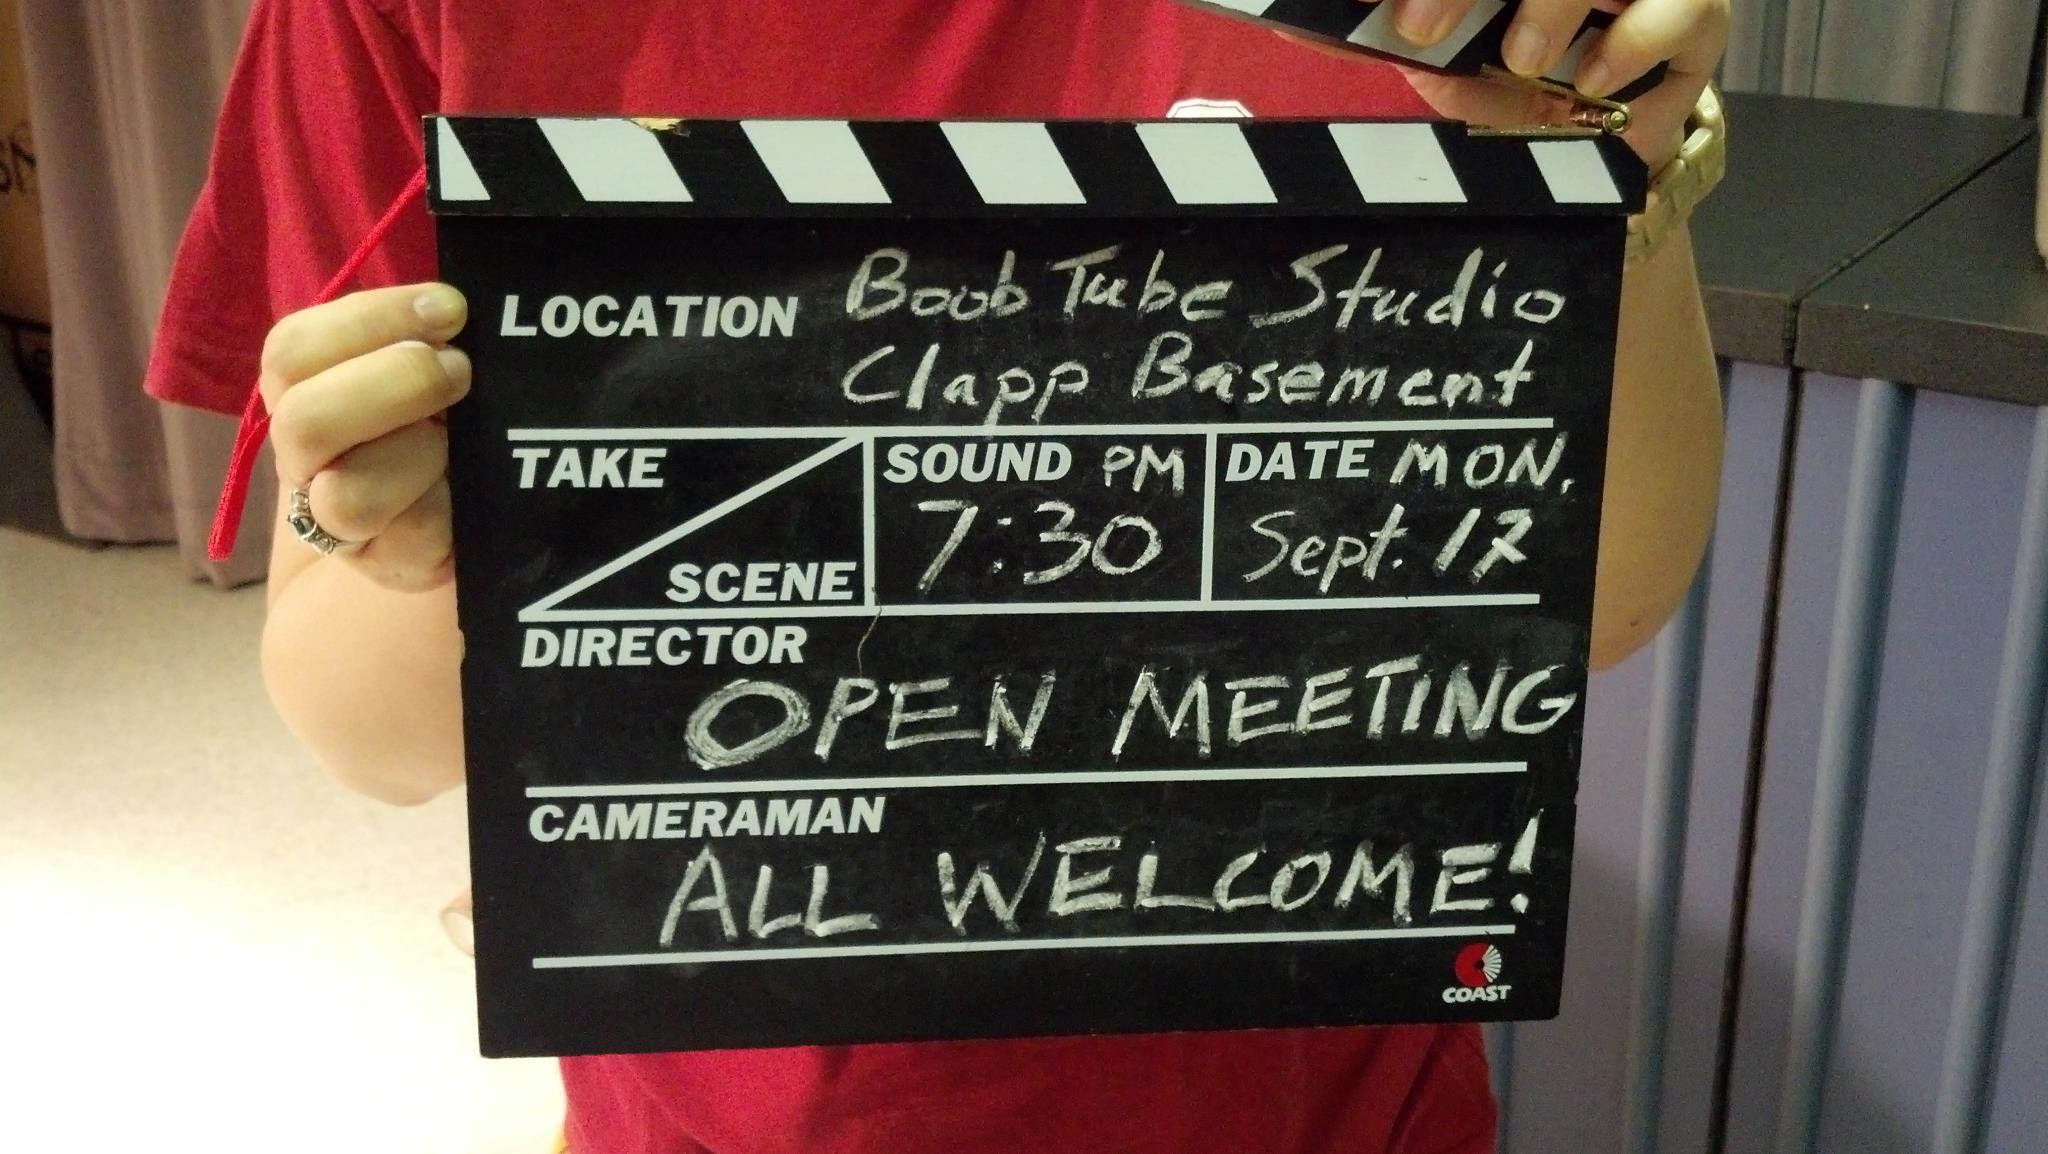 LOCATION Boob Tube Studio
Clapp Basement
TAKE
SCENE
SOUND PM
7:30
DATE MON.
Sept. 17
DIRECTOR
OPEN MEETING
CAMERAMAN
ALL WELCOME!
COAST